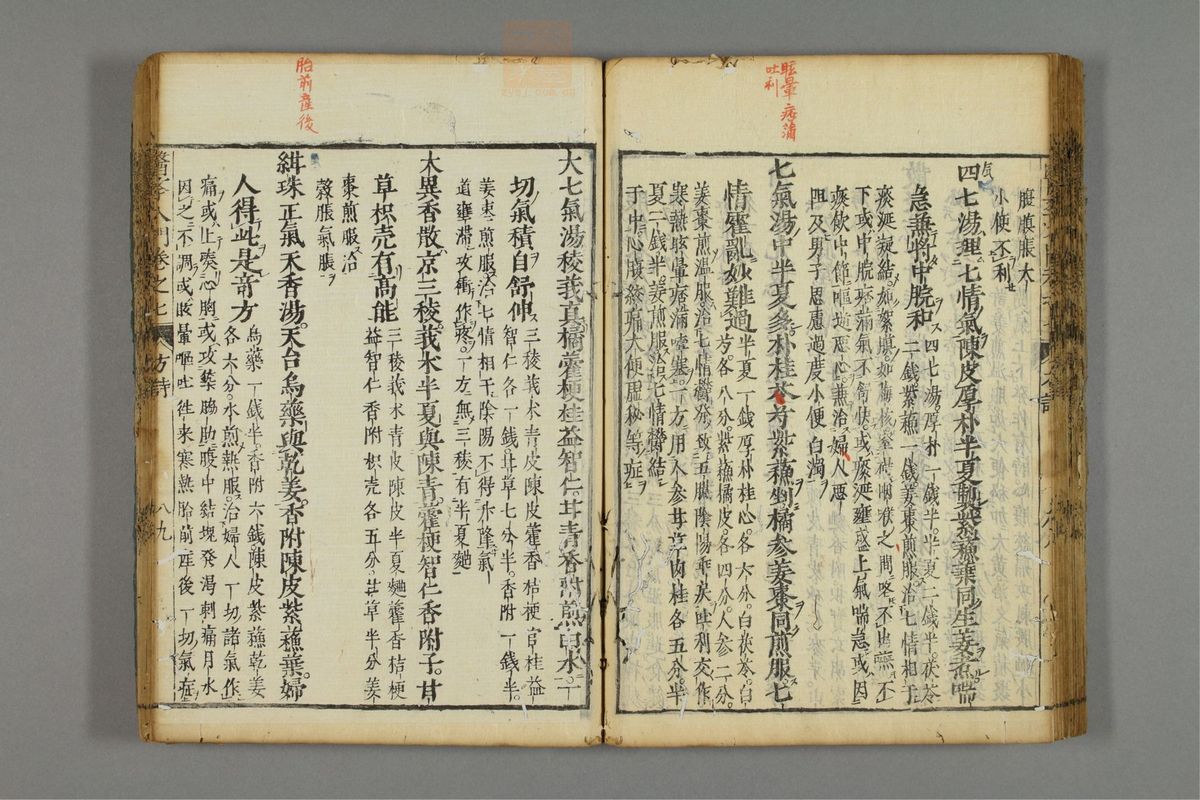 眩暈 痞滿
吐利
脹大
小便不利
四七湯理七情氣陳皮厚朴半夏製紫蘓葉同生姜煮喘
急兼將中脘和四七湯厚朴一錢半半夏二錢半茯苓
二錢紫蘓一錢姜棗煎服治七情相干
痰涎凝結如絮如梅核窒碍咽喉之間咯不出嚥不
下或中脘痞滿氣不舒快或痰涎壅盛上氣喘急或因
痰飲中節嘔逆惡心兼治婦人惡
阻及男子思慮過度小便白濁
七氣湯中半夏多朴桂苓芍紫蘓剉橘參姜棗同煎服七
情霍亂妙難過半夏一錢厚朴桂心各六分白茯苓白
芍各八分紫蘓橘皮各四分人參二分
姜棗煎溫服治七情欝發致五臟陰陽乖戾吐利交作
寒熱眩暈痞滿噎塞一方用人參甘草肉桂各五分半
夏二錢半姜煎服治七情欝結
于中心腹絞痛大便虛秘等症
胎前產後
大七氣湯稜莪真橘藿梗桂益智仁甘青香附煎由水一
切氣積自舒伸三稜莪朮青皮陳皮藿香桔梗官桂益
智仁各一錢甘草七分半香附一錢半
姜棗煎服治七情相干陰陽不得升降氣
道壅滯攻衝作疼一方無三稜有半夏麯
木異香散京三稜莪朮半夏與陳青藿梗智仁香附子甘
草枳壳有高能三稜莪朮青皮陳皮半夏麯藿香桔梗
益智仁香附枳壳各五分甘草半分姜
棗煎服治
穀脹氣脹
緝珠正氣天香湯天台烏藥與乾姜香附陳皮紫蘓葉婦
人得此是奇方烏藥一錢半香附六錢陳皮紫蘓乾姜
各六分水煎熱服治婦人一切諸氣作
痛或上奏心胸或攻築脇肋腹中結塊發渴刺痛月水
因之不調或眩暈嘔吐徃來寒熱胎前產後一切氣症
醫 入門卷之七 方詩 八九